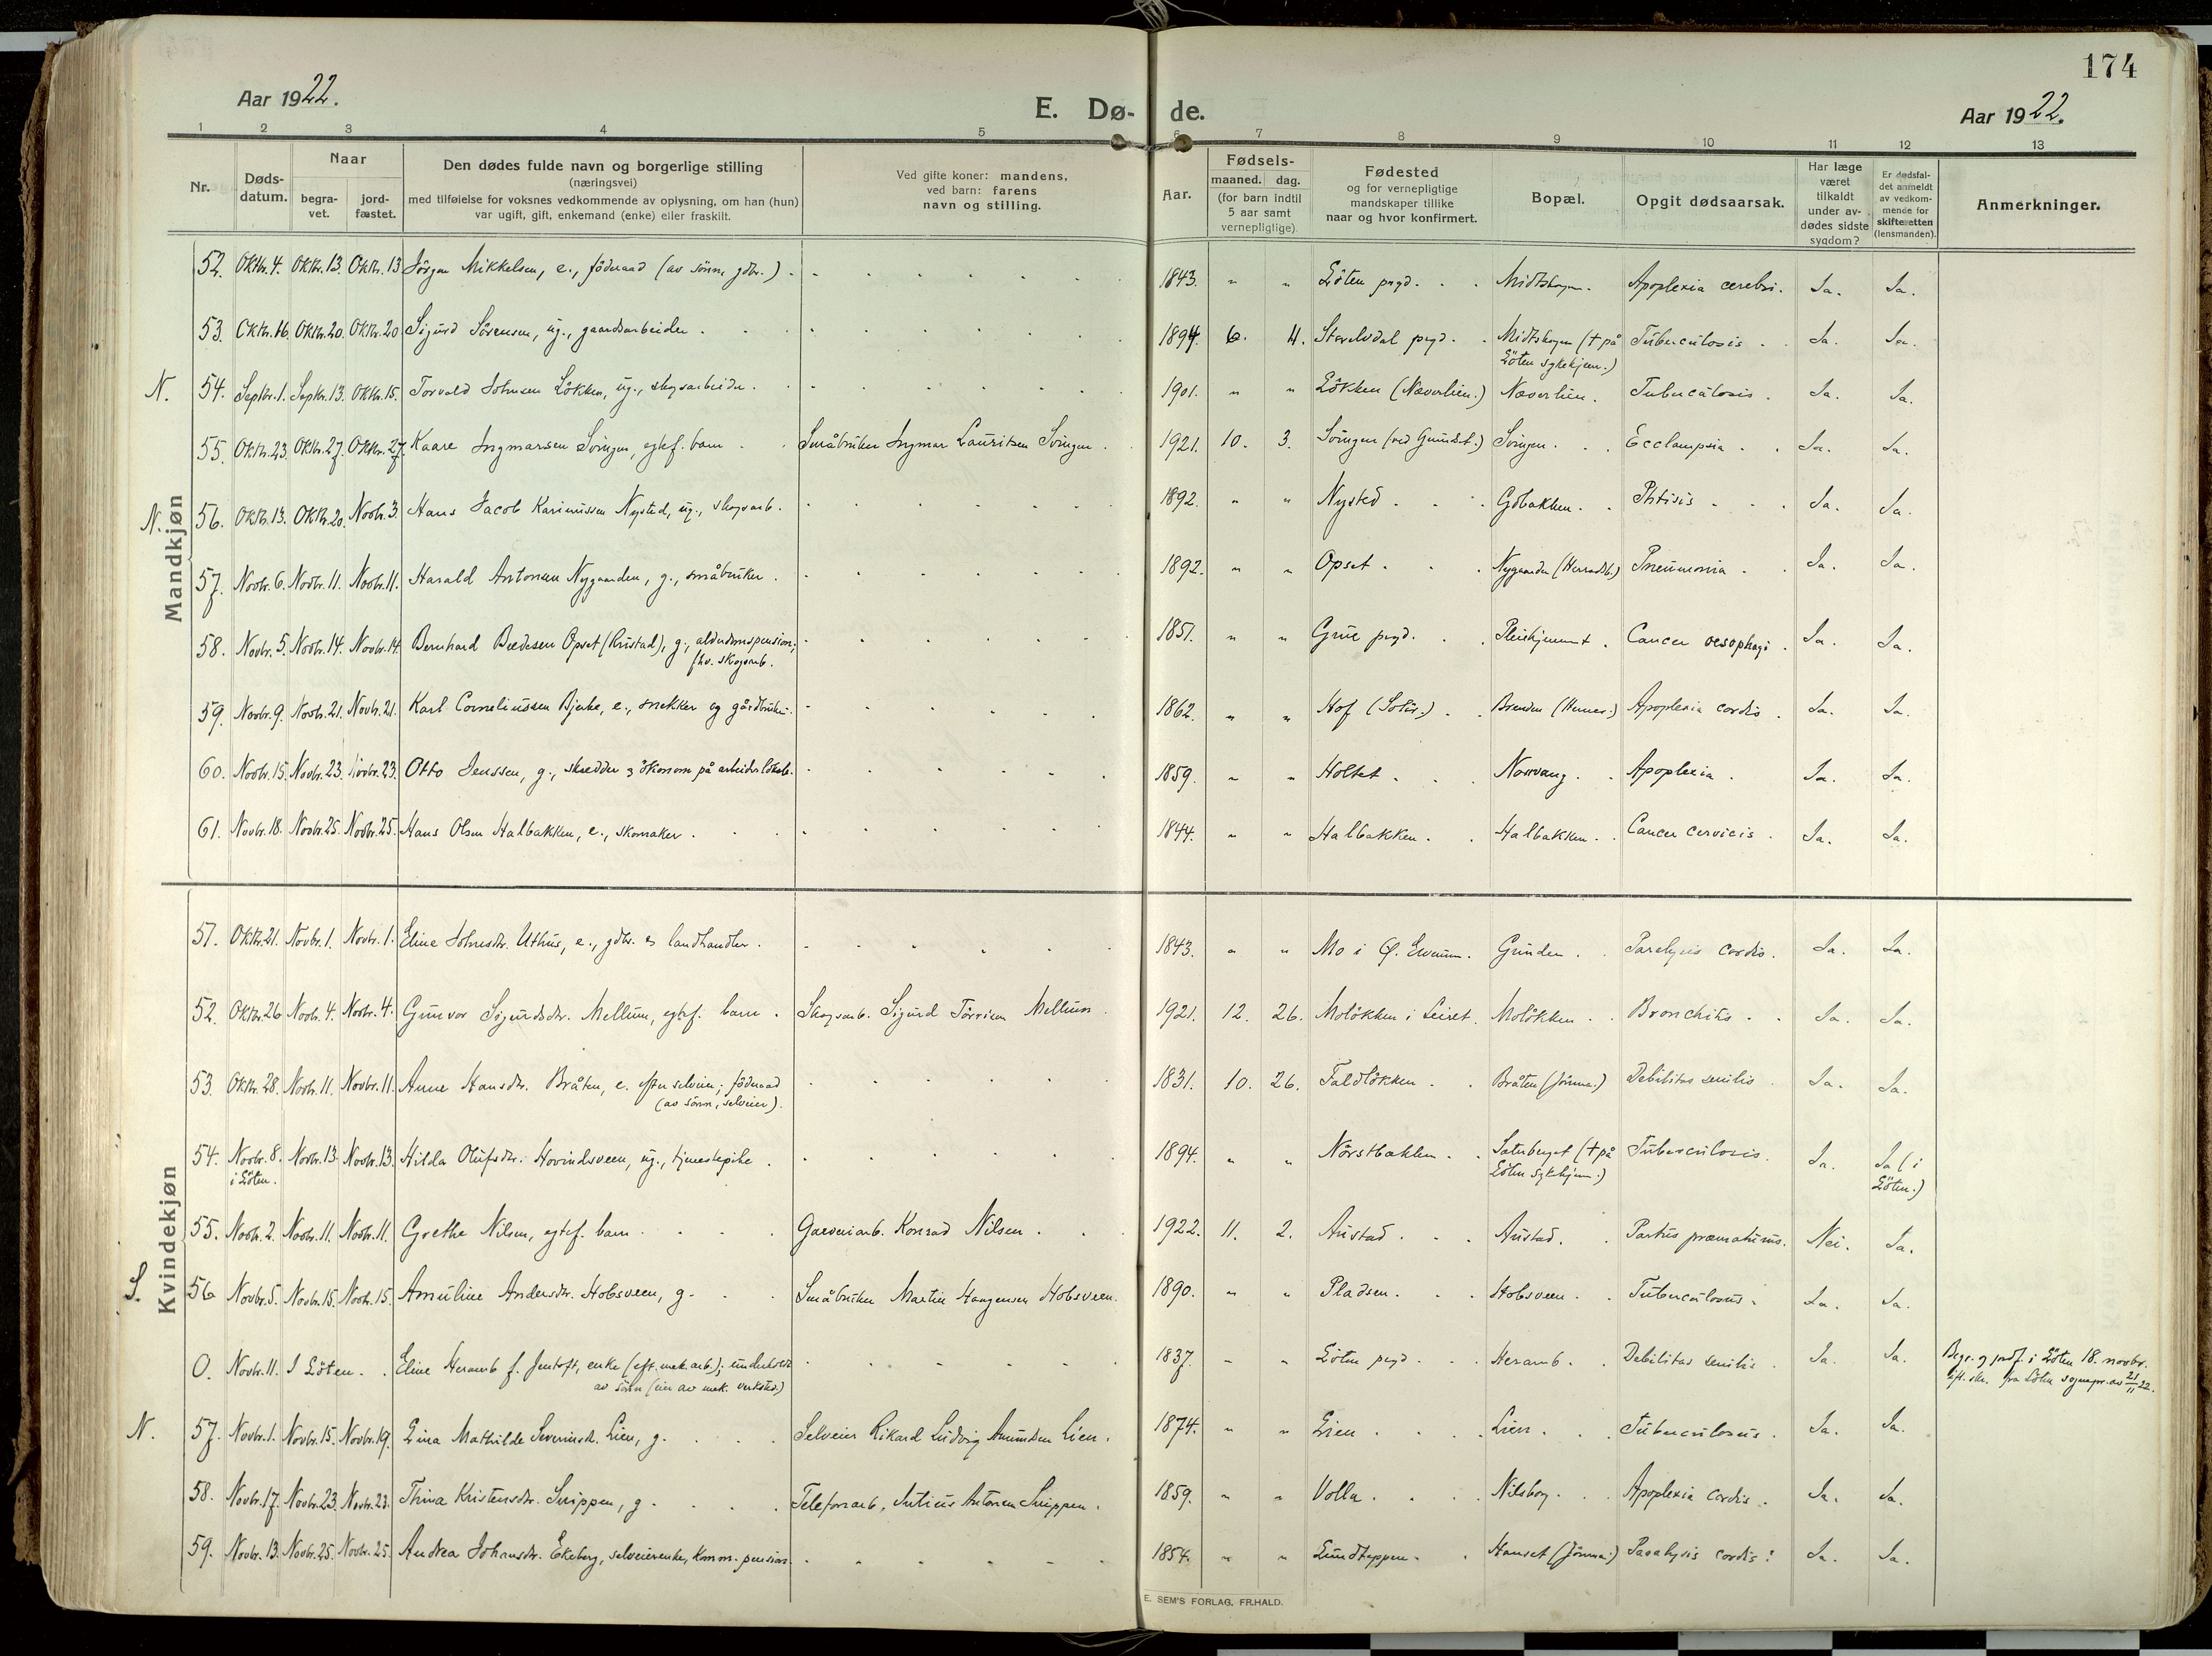 174
Aar 1922.
E. Dø- de.
Aar 1922.
1 2 3 4 5 6 7 8 9 10 11 12 13
Nr.
Døds-
datum.
Naar
begra-
vet.
jord-
fæstet.
Den dødes fulde navn og borgerlige stilling
(næringsvei)
med tilføielse for voksnes vedkommende av oplysning, om han (hun)
var ugift, gift, enkemand (enke) eller fraskilt.
Ved gifte koner: mandens,
ved barn: farens
navn og stilling.
Aar.
Fødsels-
maaned. dag.
(for barn indtil
5 aar samt
vernepligtige)
Fødested
og for vernepligtige
mandskaper tillike
naar og hvor konfirmert.
Bopæl.
Opgit dødsaarsak.
Har læge
været
tilkaldt
under av-
dødes sidste
sygdom?
Er dødsfal-
det anmeldt
av vedkom-
mende for
skifteretten
(lensmanden).
Anmerkninger.
Mandkjøn
52. Oktbr. 4. Oktbr. 13. Oktbr. 13 Jörgen Mikkelsen, e., föderaad (av sönn, gdbr.) 1843. " " Löten prgd. Midtskogen. Apoplexia cerebri. Ja. Ja.
53. Oktbr. 16. Oktbr. 20. Oktbr. 20 Sigurd Sörensen, ug., gaardsarbeider. 1894. 6. 11. Storelvdal prgd. Midtskogen († på Tuberculosis. Ja. Ja.
Löten sykehjem.)
N. 54. Septbr. 1. Septbr. 13. Oktbr. 15. Torvald Johnsen Lökken, ug., skogsarbeider. 1901. " " Lökken (Næverlien.) Næverlien. Tuberculosis. Ja. Ja.
55. Oktbr. 23. Oktbr. 27. Oktbr. 27. Kaare Ingmarsen Svingen, egtef. barn Småbruker Ingmar Lauritsen Svingen. 1921. 10. 3. Svingen (ved Grundset.) Svingen. Ecclampsia. Ja. Ja.
N. 56. Oktbr. 13. Oktbr. 20. Novbr. 3. Hans Jacob Karinussen Nysted, ug., skogsarb. 1892. " " Nysted Gobakken. Phtisis Ja. Ja.
57. Novbr. 6. Novbr. 11. Novbr. 11. Harald Antonsen Nygaarden, g., småbruker. 1892. " " Opset Nygaarden (Herradsb.) Pneumonia. Ja. Ja.
58. Novbr. 5. Novbr. 14. Novbr. 14 Bernhard Bredesen Opset (Rustad), g., alderdomspension; 1851. " " Grue prgd. Pleiehjemmet. Cancer oesophagi. Ja. Ja.
fhv. skogsarb.
59. Novbr. 9. Novbr. 21. Novbr. 21. Karl Corneliussen Bjerke, e., snekker og gårdbruker. 1862. " " Hof (Solör.) Brenden (Herner.) Apoplexia cordis. Ja. Ja.
60. Novbr. 15. Novbr. 23. Novbr. 23. Otto Jenssen, g., skredder og ökonom på arbeiderlokale. 1859. " " Holtet Norvang. Apoplexia. Ja. Ja.
61. Novbr. 18. Novbr. 25. Novbr. 25. Hans Olsen Halbakken, e., skomaker. 1844. " " Halbakken. Halbakken. Cancer cervicis. Ja. Ja.
Kvindekjøn
51. Oktbr. 21. Novbr. 1. Novbr. 1. Eline Johnsdtr. Uthus, e., gdbr. og landhandler. 1843. " " Mo i Ö. Elverum. Grinden. Paralysis cordis. Ja. Ja.
52. Oktbr. 26 Novbr. 4. Novbr. 4. Gunvor Sigurdsdtr. Mellum, egtef. barn. Skogsarb. Sigurd Törrisen Mellum. 1921. 12. 26. Molökken i Leiret. Molökken. Bronchitis. Ja. Ja.
53. Oktbr. 28. Novbr. 11. Novbr. 11. Anne Hansdtr. Bråten, e. efter selveier; föderaad 1831. 10. 26. Faldlökken. Bråten (Jömna.) Debilitas senilis. Ja. Ja.
(av sönn, selveier).
54. Novbr. 8. Novbr. 13. Novbr. 13. Hilda Olufsdtr. Hovindsveen, ug., tjenestepike. 1894. " " Nörstbakken. Sæterberget († på Tuberculosis. Ja. Ja (i
i Löten. Löten sykehjem.) Löten.)
55. Novbr. 2. Novbr. 11. Novbr. 11. Grethe Nilsen, egtef. barn Garveriarb. Konrad Nilsen. 1922. 11. 2. Austad. Austad. Partus præmaturus. Nei. Ja.
S. 56 Novbr. 5. Novbr. 15. Novbr. 15. Amuline Andersdtr. Hobsveen, g. Småbruker Martin Haagensen Hobsveen. 1890. " " Pladsen. Hobsveen. Tuberculosis. Ja. Ja.
0. Novbr. 11. I Löten. Eline Heramb f. Jentoft, enke (eft. mek. arb.); underholdt 1837. " " Löten prgd. Heramb. Debilitas senilis. Ja. Ja. Begr. og jordf. i Löten 18. novbr.
av sönn (eier av mek. verksted.) ifl. skr. fra Löten sognepr. av 21/11 22.
N. 57. Novbr. 1. Novbr. 15. Novbr. 19. Lina Mathilde Severinsdt. Lien, g. Selveier Rikard Ludvig Amundsen Lien. 1874. " " Lien Lien. Tuberculosis. Ja. Ja.
58. Novbr. 17. Novbr. 23. Novbr. 23. Thina Kristensdtr. Snippen, g. Telefonarb. Antonsen Snippen. 1859. " " Volla. Nilsborg. Apoplexia cordis. Ja. Ja.
59. Novbr. 13. Novbr. 25. Novbr. 25. Andrea Johansdtr. Ekeberg, selveierenke, komm. pension. 1854. " " Lundteppen. Hanset (Jömna.) Paralysis cordis. Ja. Ja.
E. SEM'S FORLAG, FR.HALD.